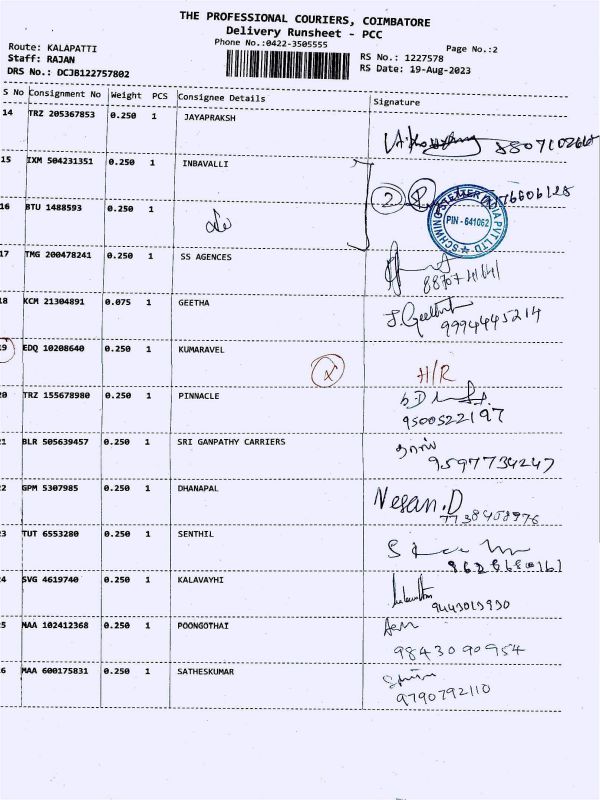 THE PROFESSIONAL COURIERS, COIMBATORE
Delivery Runsheet - PCC
Phone No.:0422-3505555
Page No.:2
Route: KALAPATTI
Staff: RAJAN
DRS No.: DCJB122757802
RS No.: 1227578
RS Date: 19-Aug-2023
S No Consignment No Weight PCS Consignee Details Signature
14 TRZ 205367853 0.250 1 JAYAPRAKSH
15 IXM 504231351 0.250 1 INBAVALLI
2
SCHWING STETTER INDIA PVT LTD
PIN - 641062
16 BTU 1488593 0.250 1
17 TMG 200478241 0.250 1 SS AGENCES
18 KCM 21304891 0.075 1 GEETHA
9994445214
19 EDQ 10208640 0.250 1 KUMARAVEL
X H/R
20 TRZ 155678980 0.250 1 PINNACLE
9500522197
21 BLR 505639457 0.250 1 SRI GANPATHY CARRIERS
9597734247
22 GPM 5307985 0.250 1 DHANAPAL
Nesan.D
7738458976
23 TUT 6553280 0.250 1 SENTHIL
24 SVG 4619740 0.250 1 KALAVAYHI
9443013930
25 MAA 102412368 0.250 1 POONGOTHAI
9843090954
26 MAA 600175831 0.250 1 SATHESKUMAR
9790792110